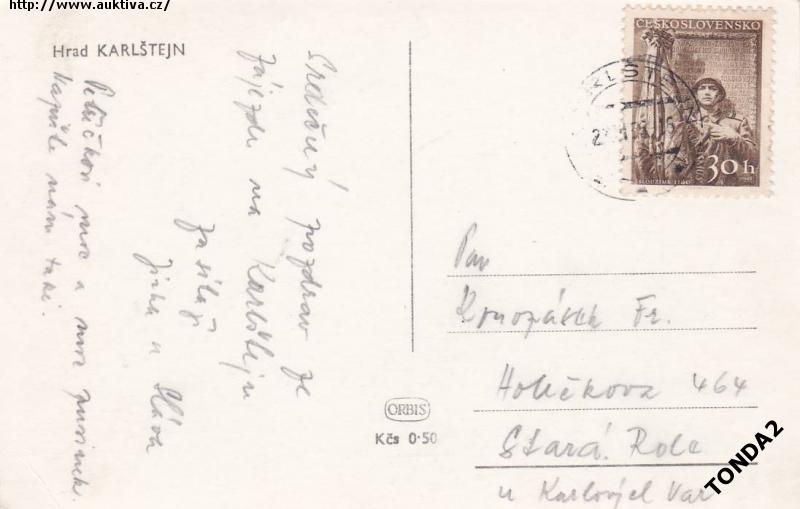 http://www.auktiva.cz/
Hrad KARLŠTEJN
Srdečný pozdrav ze
zájezdu na Karlštejn
zasílají
Jirka a Sláva
Petříčkovi moc a moc pusinek.
Napište nám také.
ORBIS
Kčs 0·50
ČESKOSLOVENSKO
30h
Pan
Konopásek Fr.
Holečkova 464
Stará Role
u Karlových Var
TONDA2